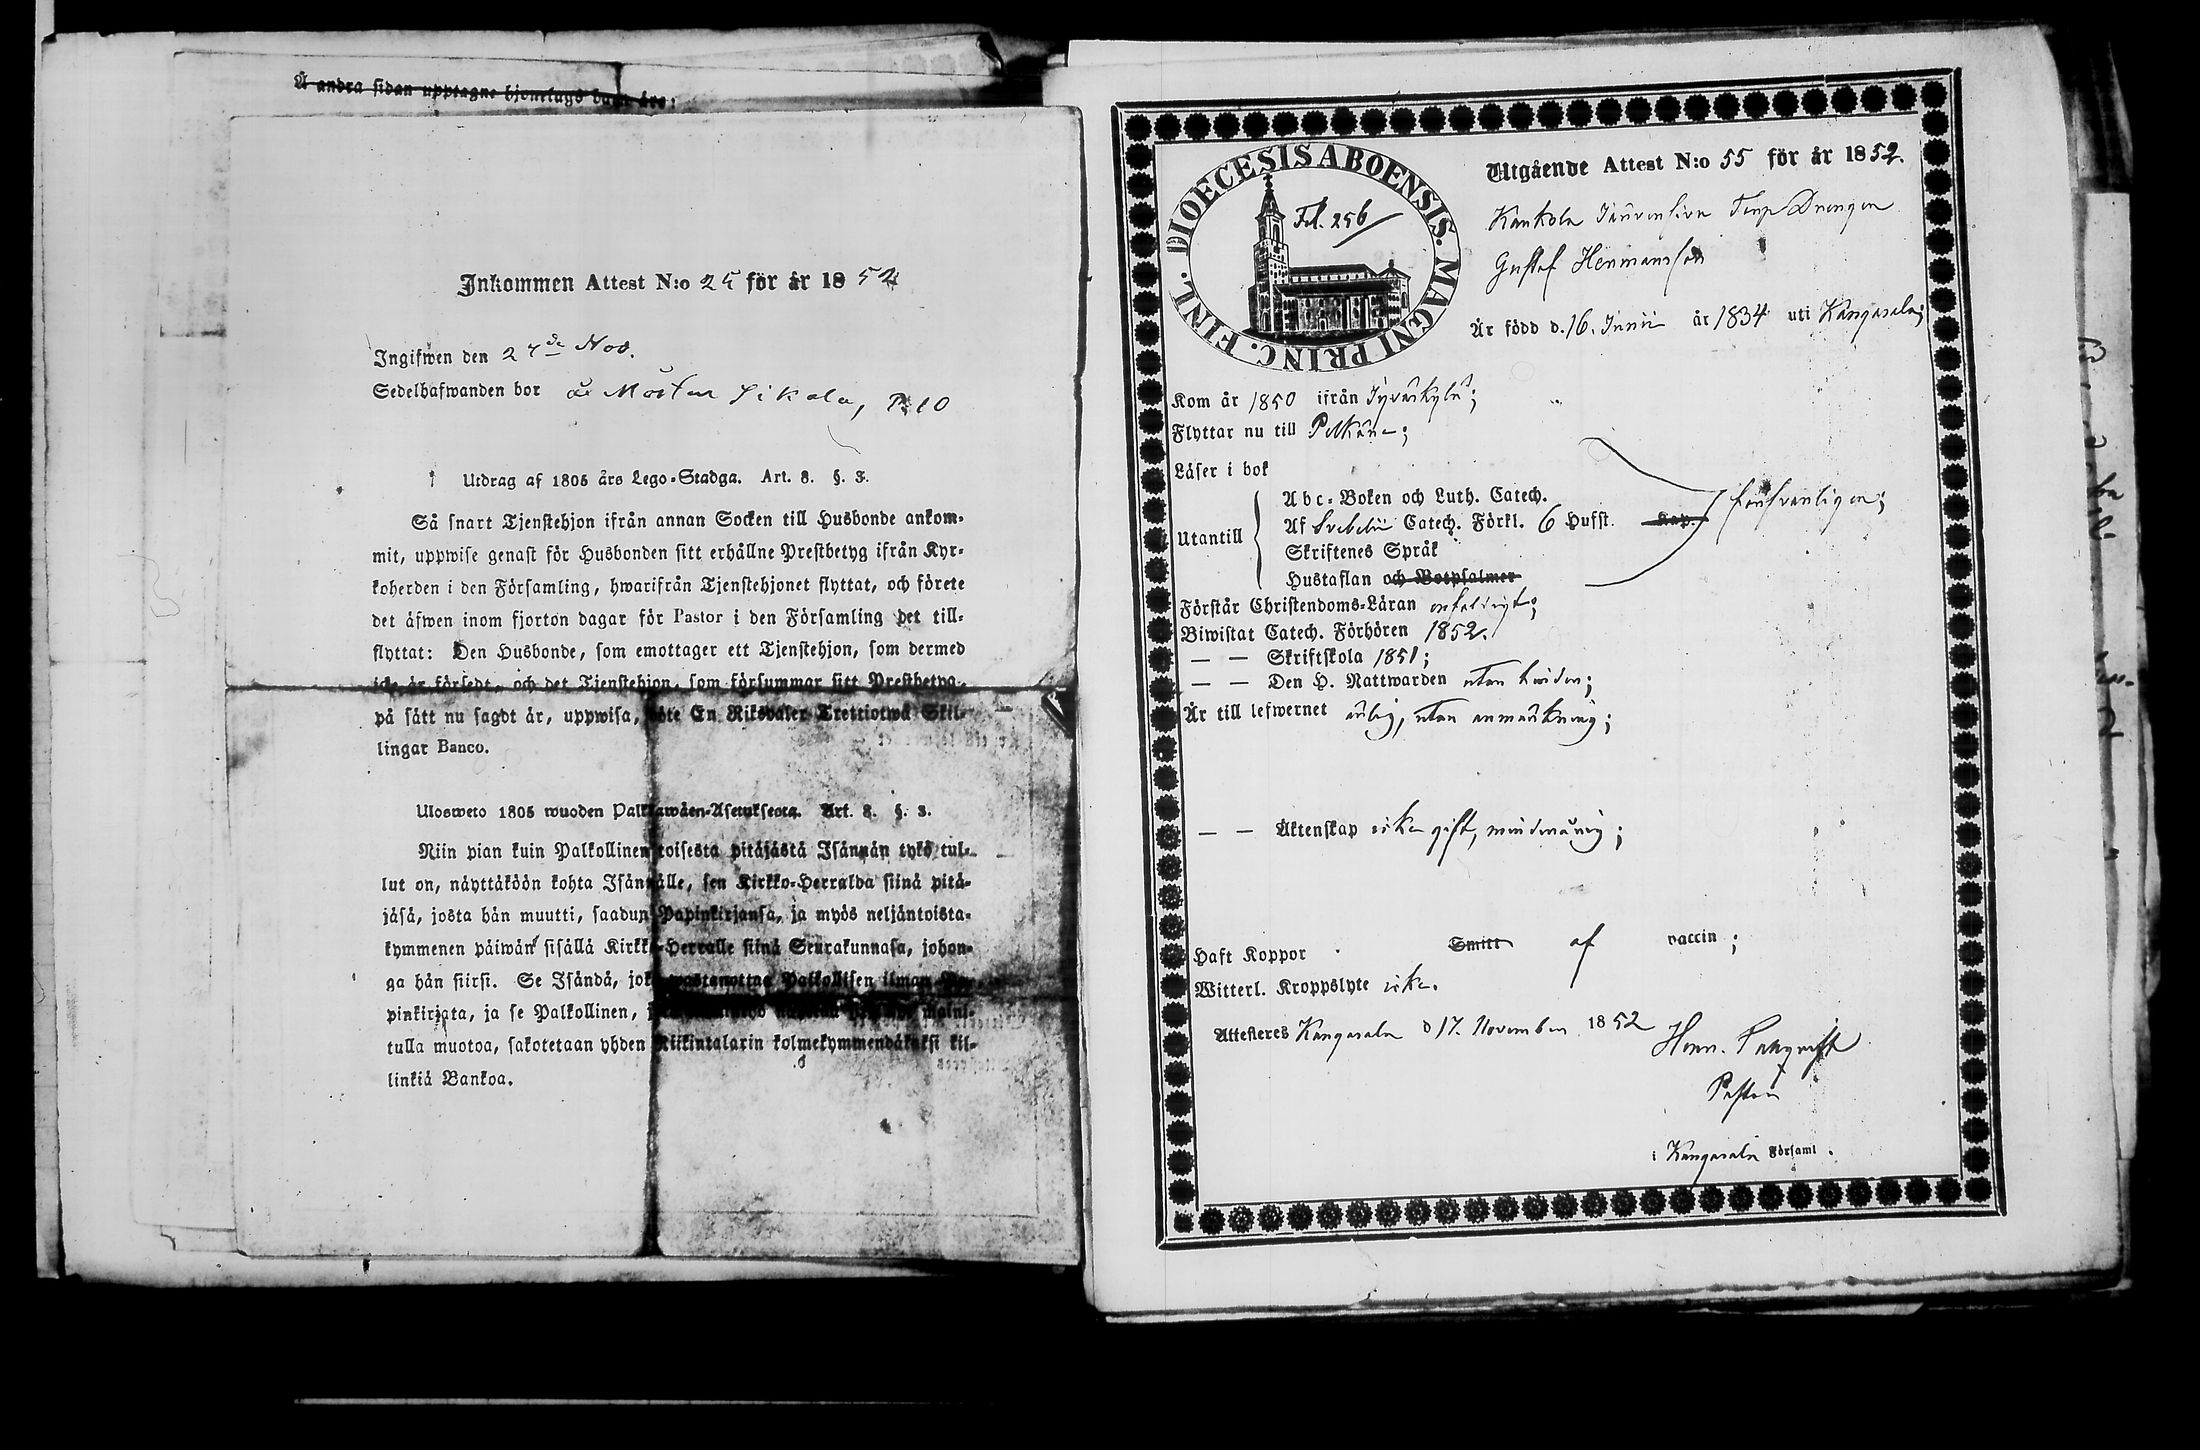 Å andra sidan upptagne hjonelags barn äro:
Inkommen Attest N:o 25 för år 1852
Ingifwen den 27de Nov.
Sedelhafwanden bor å Mårtan Sikala, P. 10
Utdrag af 1805 års Lego-Stadga. Art. 8. §. 3.
Så snart Tjenstehjon ifrån annan Socken till Husbonde ankom-
mit, uppwise genast för Husbonden sitt erhållne Prestbetyg ifrån Kyr-
koherden i den Församling, hwarifrån Tjenstehjonet flyttat, och förete
det äfwen inom fjorton dagar för Pastor i den Församling det till-
flyttat: Den Husbonde, som emottager ett Tjenstehjon, som dermed
icke är försedt, och det Tjenstehjon, som försummar sitt Prestbetyg,
på sätt nu sagdt är, uppwisa, böte En Riksdaler Trettiotwå Skil-
lingar Banco.
Ulosweto 1805 wuoden Palkkawäen-Asetuksesta. Art. 8. §. 3.
Niin pian kuin Palkollinen toisesta pitäjästä Isännän tykö tul-
lut on, näyttäköön kohta Isännälle, sen Kirkko-Herralda siinä pitä-
jäsä, josta hän muutti, saadun Papinkirjansa, ja myös neljäntoista-
kymmenen päiwän sisällä Kirkko-Herralle siinä Seurakunnasa, johon-
ga hän siirsi. Se Isändä, joka wastanottaa Palkollisen ilman Pa-
pinkirjata, ja se Palkollinen, maini-
tulla muotoa, sakotetaan yhden Riikintalarin kolmekymmendäkaksi kil-
linkiä Bankoa.
DIOECESIS ABOENSIS. MAGNI PRINC. FINL.
Fol. 256
Utgående Attest N:o 55 för år 1852.
Kankola Drengen
Gustaf Hermansson
Är född d. 16. Junii år 1834 uti Kangasala;
Kom år 1850 ifrån Jyväskylä;
Flyttar nu till Pelkäne;
Läser i bok
Abc-Boken och Luth. Catech.
Utantill Af Svebelii Catech. Förkl. 6 Hufst. Kap. försvarligen;
Skriftenes Språk
Hustaflan och Botpsalmer
Förstår Christendoms-Läran enfaldigt;
Biwistat Catech. Förhören 1852.
— — Skriftskola 1851;
— — Den H. Nattwarden utan hinder;
Är till lefwernet ärlig, utan anmärkning;
— — Äktenskap icke gift, minderårig;
Haft Koppor Smitt af vaccin;
Witterl. Kroppslyte icke.
Attesteres Kangasala d 17. November 1852
Henr.
Pastor
i Kangasala Församl.